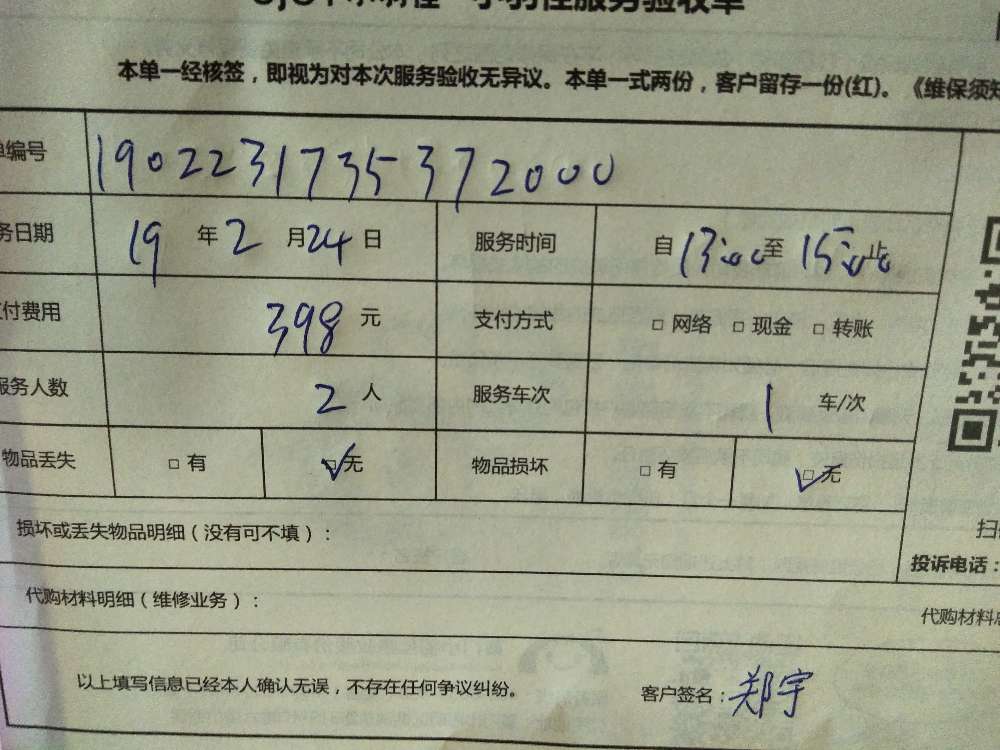 服务验收单
本单一经核签，即视为对本次服务验收无异议。本单一式两份，客户留存一份(红)。《维保须知
单编号 1902231735372000
务日期 19 年 2 月 24 日 服务时间 自 13:00 至 15:00 止
付费用 398 元 支付方式 □ 网络 □ 现金 □ 转账
服务人数 2 人 服务车次 1 车/次
物品丢失 □ 有 ☑ 无 物品损坏 □ 有 ☑ 无
损坏或丢失物品明细（没有可不填）：
扫
投诉电话：
代购材料明细（维修业务）：
代购材料总
以上填写信息已经本人确认无误，不存在任何争议纠纷。 客户签名：郑宇